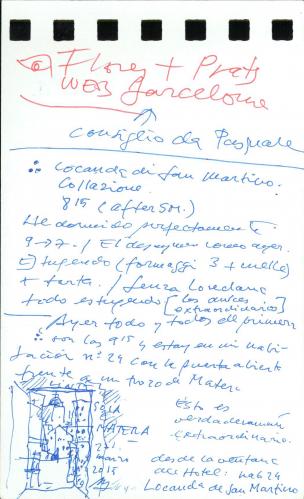 Flores + Prats
WEB Barcelone
Consiglio da Pasquale
Locanda di San Martino.
Collazione.
8 15 (after SM.)
He dormido perfectamente
9→7. / El desayuno como ayer.
Estupendo (formaggi 3 + miele)
+ torta. / Senza Loredana
todo estupendo [los dulces extraordinarios]
Ayer todo y todos de primera
son las 9 15 y estoy en mi habi-
tación nº 24 con la puerta abierta
frente a un trozo de Matera
MATERA
21.
marzo
2015
Esto es
verdaderamente
extraordinario.
desde la ventana
del Hotel: hab 24
Locanda de San Martino